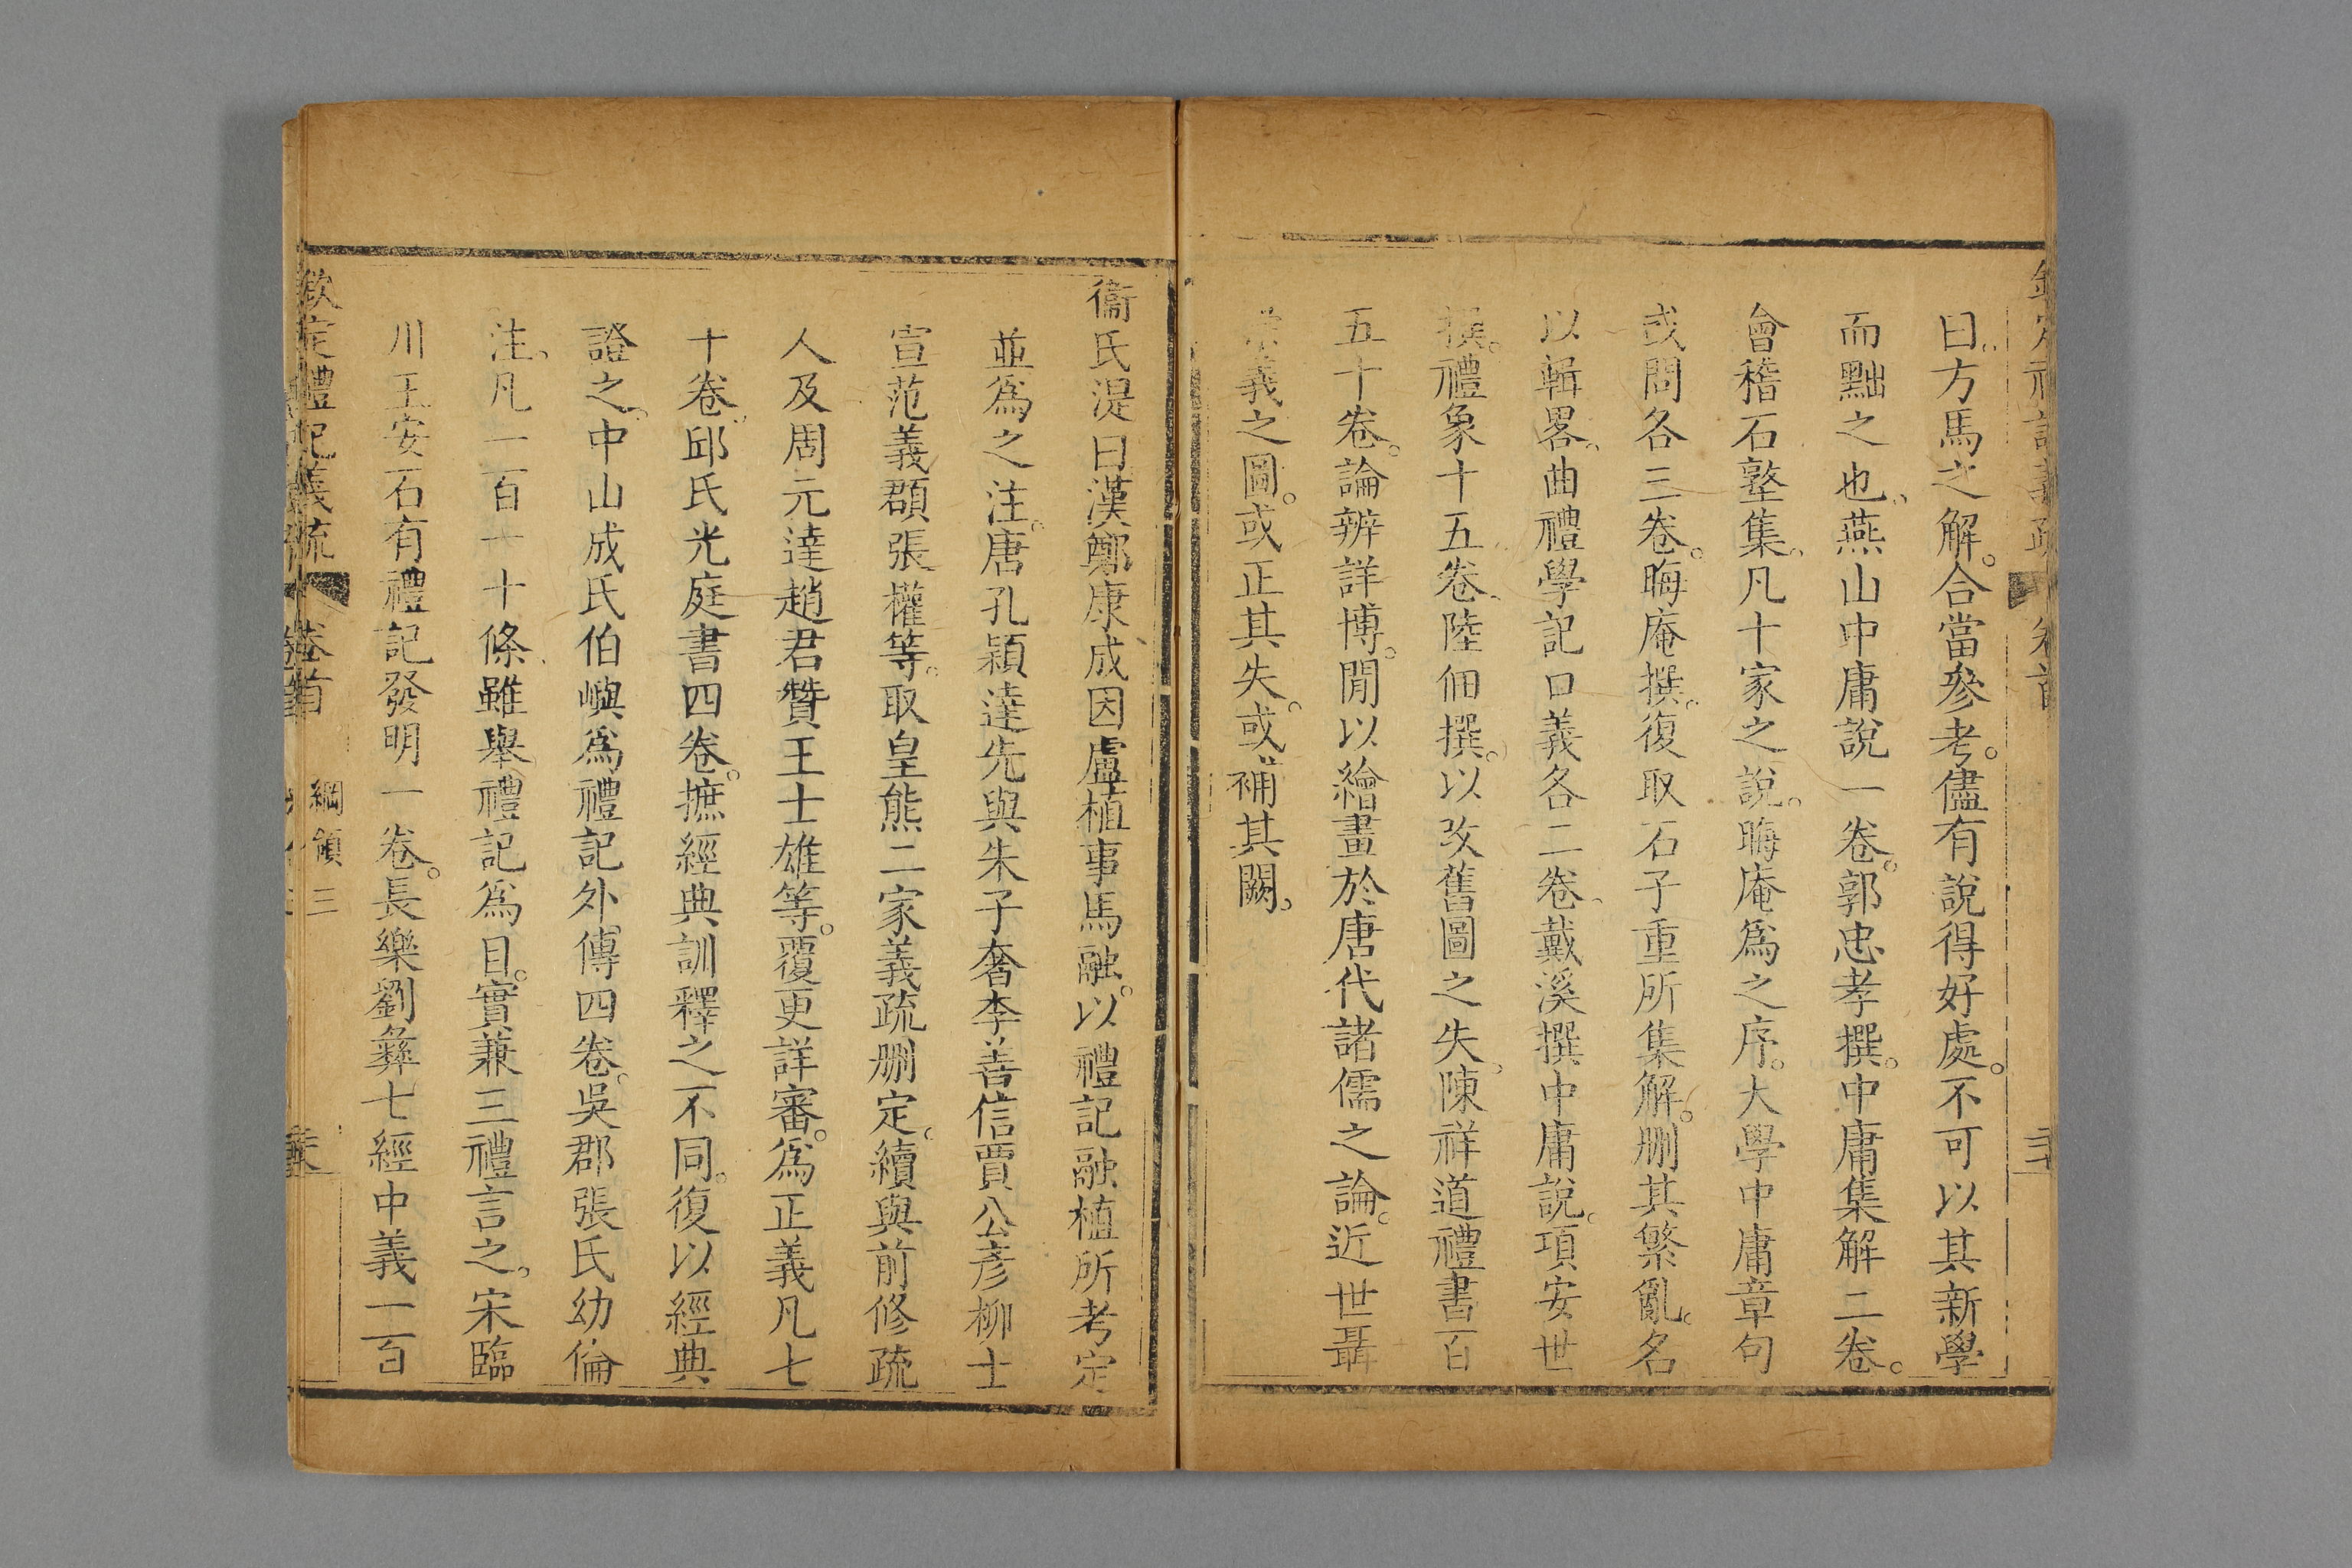 曰方馬之解合當參考儘有說得好處不可以其新學
而黜之也燕山中庸說一卷郭忠孝撰中庸集解二卷
會稽石𡼖集凡十家之說晦庵爲之序大學中庸章句
或問各三卷晦庵撰復取石子重所集解刪其繁亂名
以輯畧曲禮學記口義各二卷戴溪撰中庸說項安世
撰禮象十五卷陸佃撰以改舊圖之失陳祥道禮書百
五十卷論辨詳博閒以繪畫於唐代諸儒之論近世聶
崇義之圖或正其失或補其闕
衞氏湜曰漢鄭康成因盧植事馬融以禮記融植所考定
並爲之注唐孔穎達先與朱子奢李善信賈公彥柳士
宣范義頵張權等取皇熊二家義疏刪定續與前修疏
人及周元達趙君贊王士雄等覆更詳審爲正義凡七
十卷邱氏光庭書四卷摭經典訓釋之不同復以經典
證之中山成氏伯嶼爲禮記外傳四卷吳郡張氏幼倫
注凡一百一十條雖舉禮記爲目實兼三禮言之宋臨
川王安石有禮記發明一卷長樂劉彝七經中義一百
欽定禮記義疏 卷首 綱領三